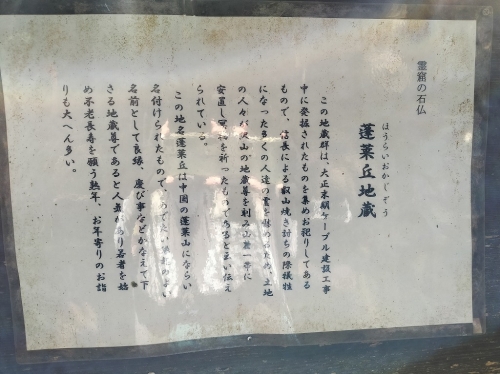 霊窟の石仏
ほうらいおかじぞう
蓬莱丘地蔵
この地蔵群は、大正末期ケーブル建設工事
中に発掘されたものを集めお祀りしてある
もので、信長による叡山焼き討ちの際犠牲
になった多くの人達の霊を慰めるため、土地
の人々が沢山の地蔵尊を刻み山麓一帯に
安置し冥福を祈ったものであると云い伝え
られている。
この地名蓬莱丘は中国の蓬莱山にならい
名付けられたもので、めでたい
名前として良縁、慶び事などかなえて下
さる地蔵尊であると人気があり若者を始
め不老長寿を願う熟年、お年寄りのお詣
りも大へん多い。